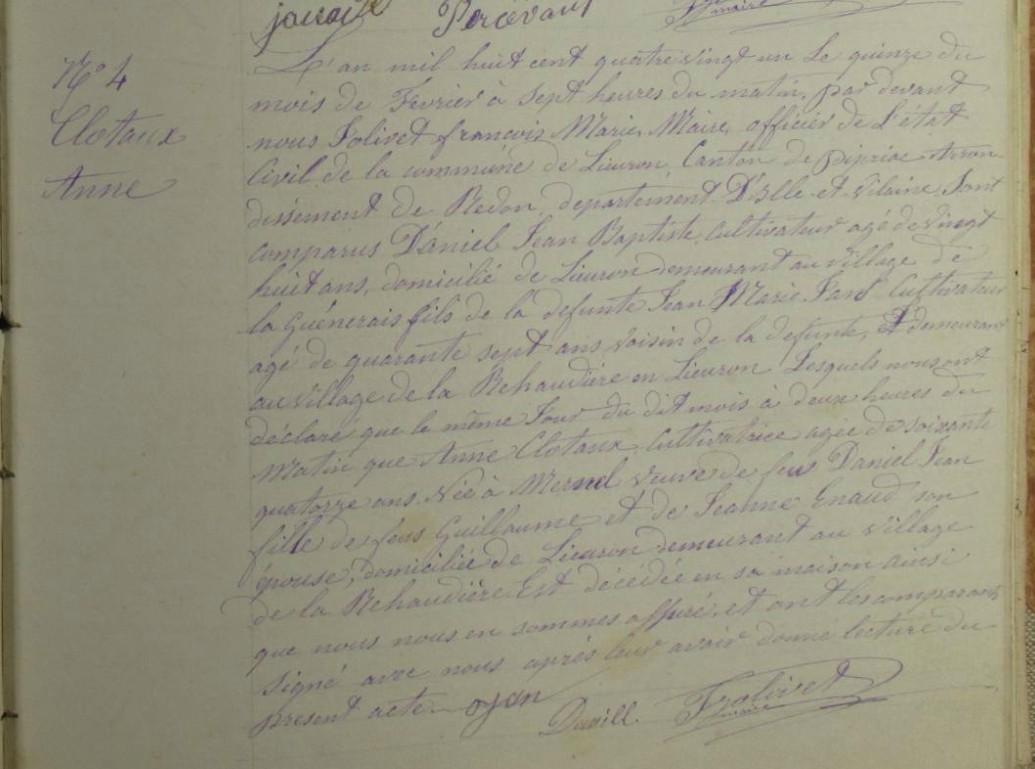 Percevault
maire
N° 4
Clotaux
Anne
L'an mil huit cent quatre vingt un Le quinze du
mois de Fevrier à Sept heures du matin, par devant
nous Jolivet françois Marie, Maire, officier de L'état
Civil de la commune de Lieuron, Canton de pipriac Arron
dissement de Redon, departement D'Ille et Vilaine, Sont
comparus Daniel Jean Baptiste, Cultivateur agé de Vingt
huit ans, domicilié de Lieuron demeurant au Village de
la Guénerais fils de la defunte Jean Marie Cultivateur
agé de quarante sept ans Voisin de la defunte, Et demeurant
au Village de la Rehaudière en Lieuron Lesquels nous ont
déclaré que le même Jour du dit mois à deux heures du
Matin que Anne Clotaux Cultivatrice agée de soixante
quatorze ans. Née à Mernel Veuve de feus Daniel Jean
fille de feus Guillaume et de Jeanne Enaud son
épouse, domiciliée de Lieuron demeurant au Village
de la Rehaudière Est décédée en sa maison ainsi
que nous nous en sommes assuré, et ont les comparants
Signé avec nous après leur avoir donné lecture du
present acte
Jolivet
maire